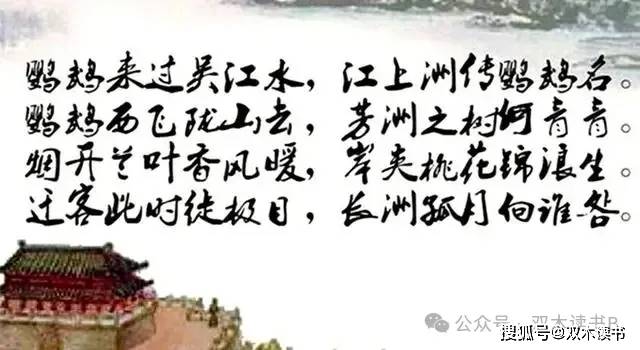 鹦鹉来过吴江水，江上洲传鹦鹉名。
鹦鹉西飞陇山去，芳洲之树何青青。
烟开兰叶香风暖，岸夹桃花锦浪生。
迁客此时徒极目，长洲孤月向谁。
公众号 · 双木读书B
搜狐号@双木读书